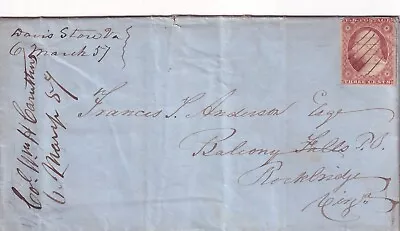 Davis Store Va
6 March 57
Col. Wm H Caruthers
6 March 57
Francis T. Anderson Esqr
Balcony Falls P.O.
Rockbridge
Virga
THREE CENTS